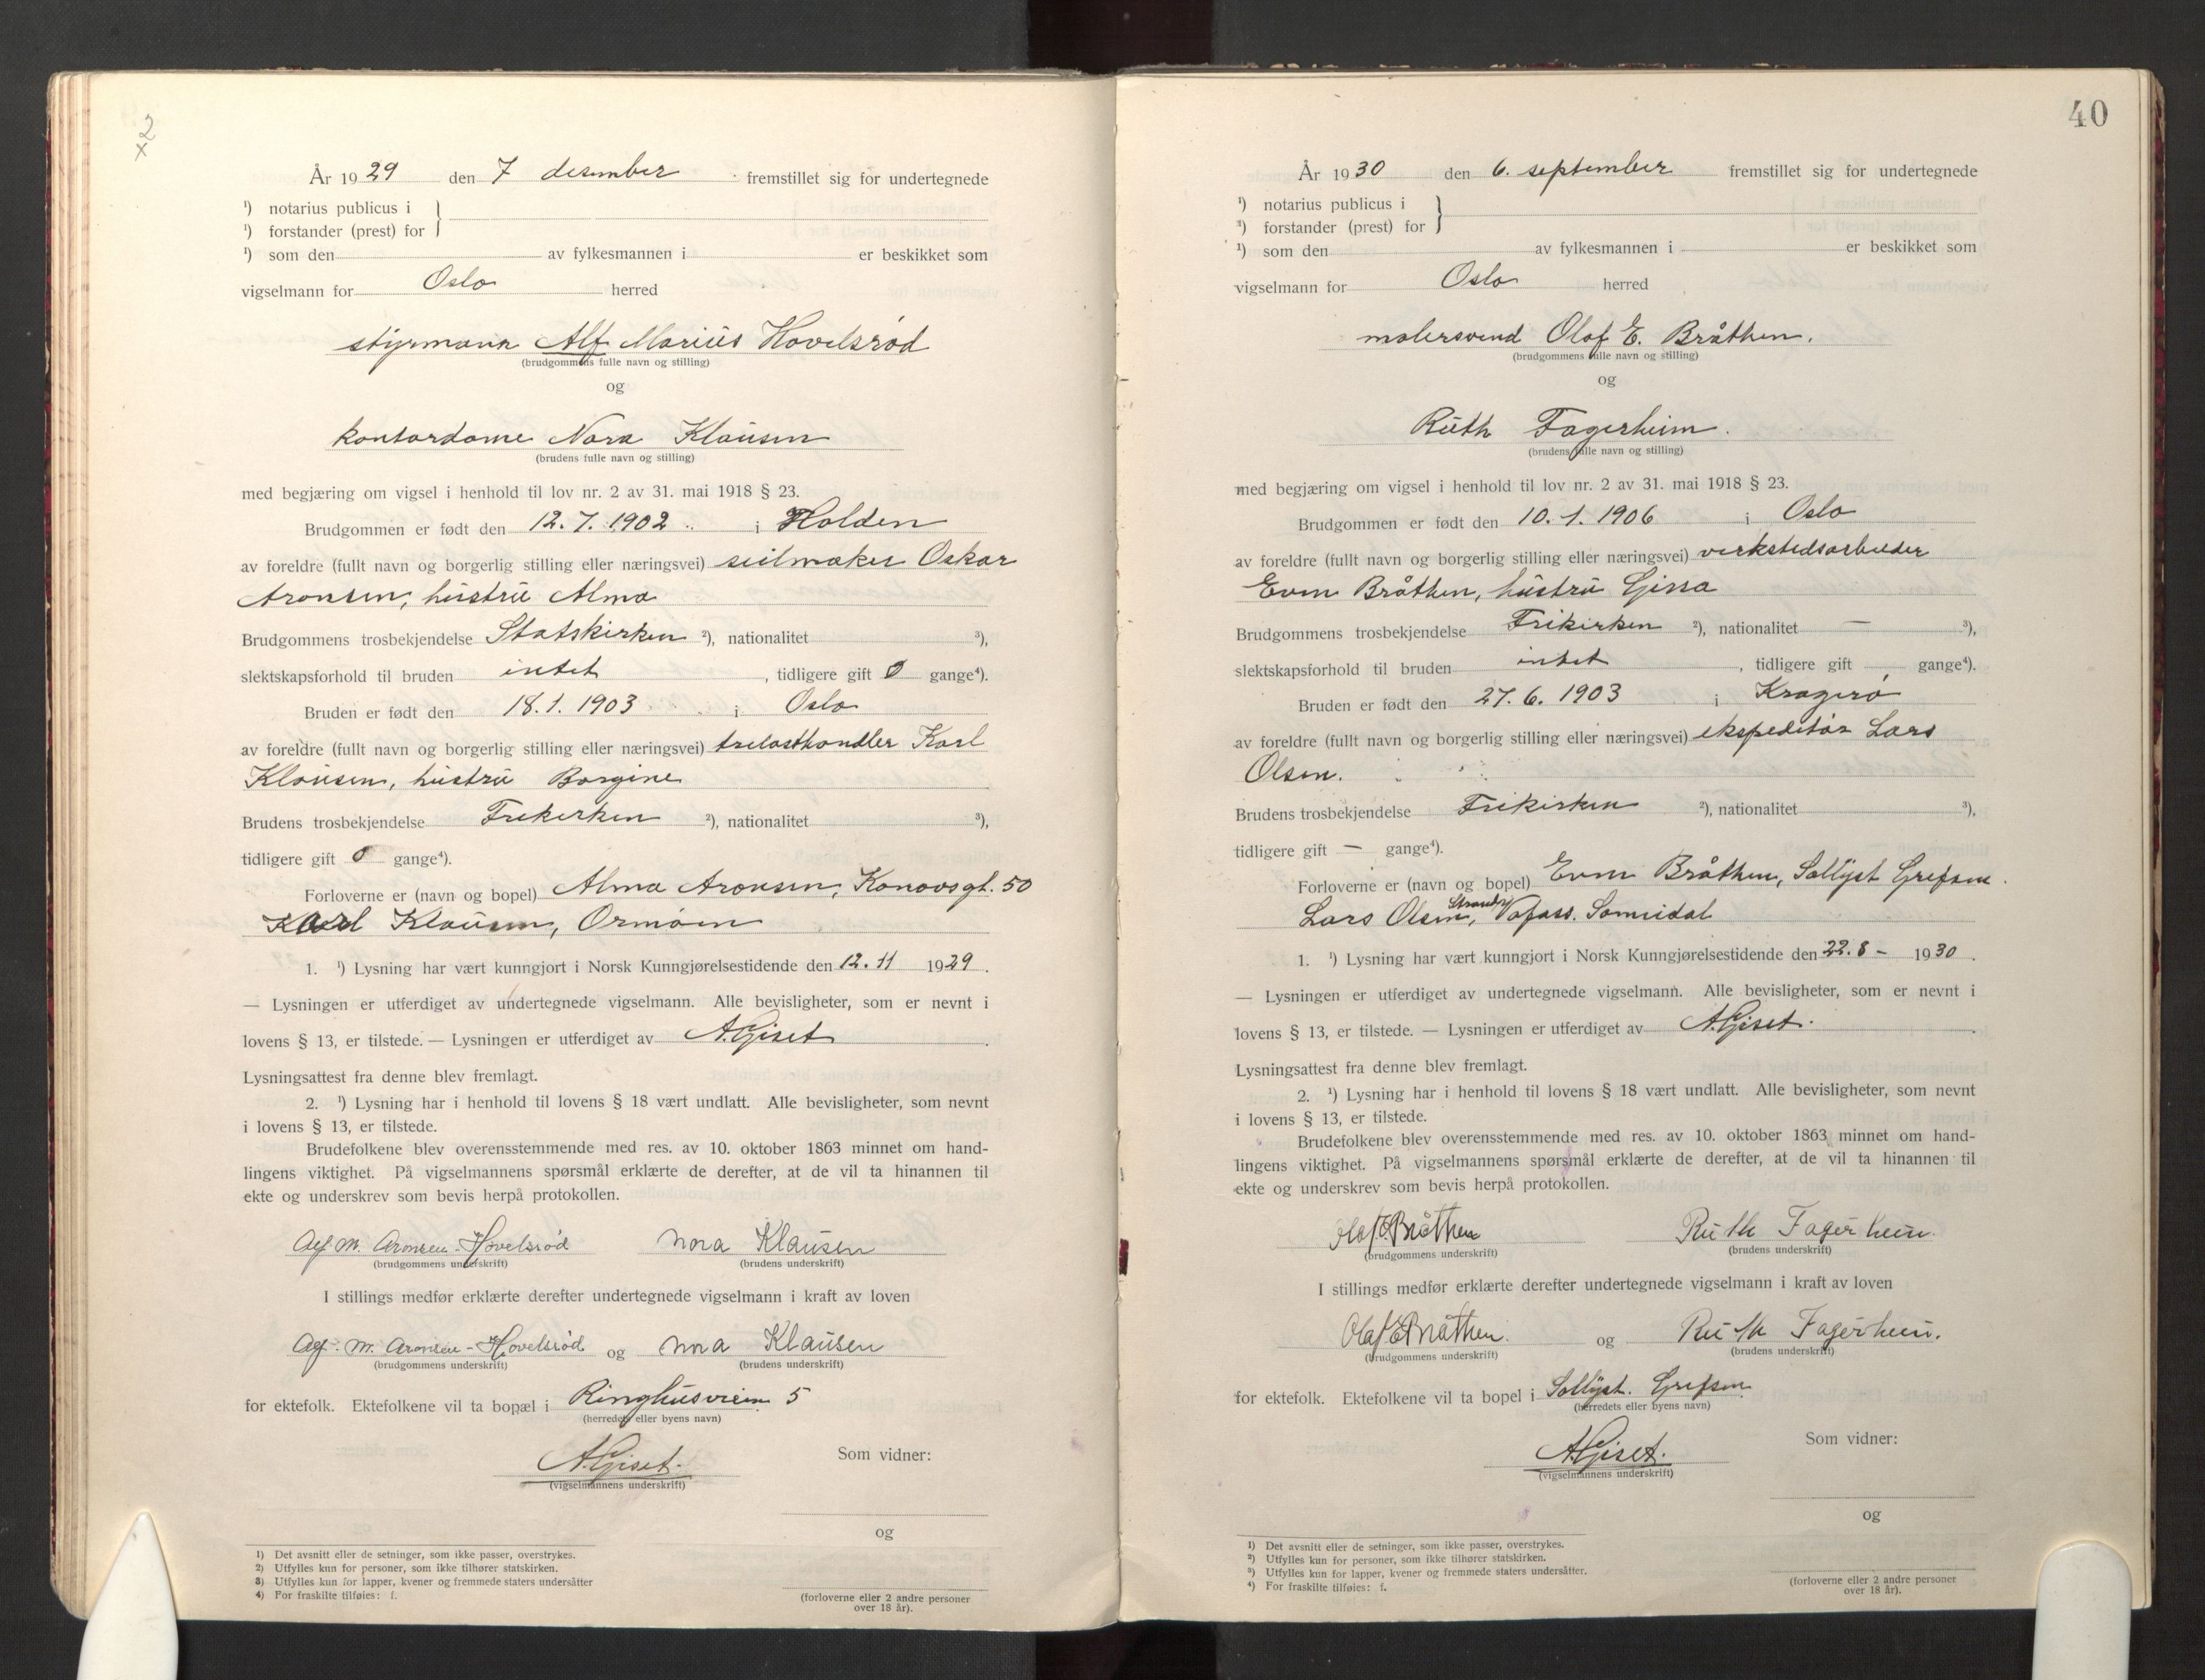 2
x
År 1929 den 7 desember fremstillet sig for undertegnede
¹) notarius publicus i }
¹) forstander (prest) for
¹) som den av fylkesmannen i er beskikket som
vigselmann for Oslo herred
styrmann Alf Marius Hovelsrød
(brudgommens fulle navn og stilling)
og
kontordame Nora Klausen
(brudens fulle navn og stilling)
med begjæring om vigsel i henhold til lov nr. 2 av 31. mai 1918 § 23.
Brudgommen er født den 12.7.1902 i Halden
av foreldre (fullt navn og borgerlig stilling eller næringsvei) seilmaker Oskar
Aronsen, hustru Alma
Brudgommens trosbekjendelse Statskirken ²), nationalitet ³),
slektskapsforhold til bruden intet , tidligere gift 0 gange⁴).
Bruden er født den 18.1.1903 i Oslo
av foreldre (fullt navn og borgerlig stilling eller næringsvei) trelasthandler Karl
Klausen, hustru Borgine
Brudens trosbekjendelse Frikirken ²), nationalitet ³),
tidligere gift 0 gange⁴).
Forloverne er (navn og bopel) Alma Aronsen, Konowsgt. 50
Karl Klausen, Ormøen
1. ¹) Lysning har vært kunngjort i Norsk Kunngjørelsestidende den 12.11 1929.
— Lysningen er utferdiget av undertegnede vigselmann. Alle bevisligheter, som er nevnt i
lovens § 13, er tilstede. — Lysningen er utferdiget av A. Giset .
Lysningsattest fra denne blev fremlagt.
2. ¹) Lysning har i henhold til lovens § 18 vært undlatt. Alle bevisligheter, som nevnt
i lovens § 13, er tilstede.
Brudefolkene blev overensstemmende med res. av 10. oktober 1863 minnet om hand-
lingens viktighet. På vigselmannens spørsmål erklærte de derefter, at de vil ta hinannen til
ekte og underskrev som bevis herpå protokollen.
Alf M. Aronsen-Hovelsrød Nora Klausen
(brudgommens underskrift) (brudens underskrift)
I stillings medfør erklærte derefter undertegnede vigselmann i kraft av loven
Alf. M. Aronsen-Hovelsrød og Nora Klausen
(brudgommens underskrift) (brudens underskrift)
for ektefolk. Ektefolkene vil ta bopæl i Ringhusveien 5
(herredets eller byens navn)
A. Giset. Som vidner:
(vigselmannens underskrift)
og
1) Det avsnitt eller de setninger, som ikke passer, overstrykes.
2) Utfylles kun for personer, som ikke tilhører statskirken.
3) Utfylles kun for lapper, kvener og fremmede staters undersåtter
4) For fraskilte tilføies: f.
(forloverne eller 2 andre personer
over 18 år).
40
År 1930 den 6. september fremstillet sig for undertegnede
¹) notarius publicus i }
¹) forstander (prest) for
¹) som den av fylkesmannen i er beskikket som
vigselmann for Oslo herred
malersvend Olaf E. Bråthen.
(brudgommens fulle navn og stilling)
og
Ruth Fagerheim.
(brudens fulle navn og stilling)
med begjæring om vigsel i henhold til lov nr. 2 av 31. mai 1918 § 23.
Brudgommen er født den 10.1.1906 i Oslo
av foreldre (fullt navn og borgerlig stilling eller næringsvei) verkstedsarbeider
Even Bråthen, hustru Gina
Brudgommens trosbekjendelse Frikirken ²), nationalitet — ³),
slektskapsforhold til bruden intet , tidligere gift gange⁴).
Bruden er født den 27.6.1903 i Kragerø
av foreldre (fullt navn og borgerlig stilling eller næringsvei) ekspeditør Lars
Olsen.
Brudens trosbekjendelse Frikirken ²), nationalitet ³),
tidligere gift — gange⁴).
Forloverne er (navn og bopel) Even Bråthen, Sollyst Grefsen.
Lars Olsen, Sannidal
1. ¹) Lysning har vært kunngjort i Norsk Kunngjørelsestidende den 22.8 – 1930.
— Lysningen er utferdiget av undertegnede vigselmann. Alle bevisligheter, som er nevnt i
lovens § 13, er tilstede. — Lysningen er utferdiget av A. Giset. .
Lysningsattest fra denne blev fremlagt.
2. ¹) Lysning har i henhold til lovens § 18 vært undlatt. Alle bevisligheter, som nevnt
i lovens § 13, er tilstede.
Brudefolkene blev overensstemmende med res. av 10. oktober 1863 minnet om hand-
lingens viktighet. På vigselmannens spørsmål erklærte de derefter, at de vil ta hinannen til
ekte og underskrev som bevis herpå protokollen.
Olaf E Bråthen Ruth Fagerheim.
(brudgommens underskrift) (brudens underskrift)
I stillings medfør erklærte derefter undertegnede vigselmann i kraft av loven
Olaf E Bråthen. og Ruth Fagerheim.
(brudgommens underskrift) (brudens underskrift)
for ektefolk. Ektefolkene vil ta bopel i Sollyst. Grefsen
(herredets eller byens navn)
A. Giset. Som vidner:
(vigselmannens underskrift)
og
¹) Det avsnitt eller de setninger, som ikke passer, overstrykes.
²) Utfylles kun for personer, som ikke tilhører statskirken.
³) Utfylles kun for lapper, kvener og fremmede staters undersåtter.
⁴) For fraskilte tilføies: f.
(forloverne eller 2 andre personer
over 18 år).